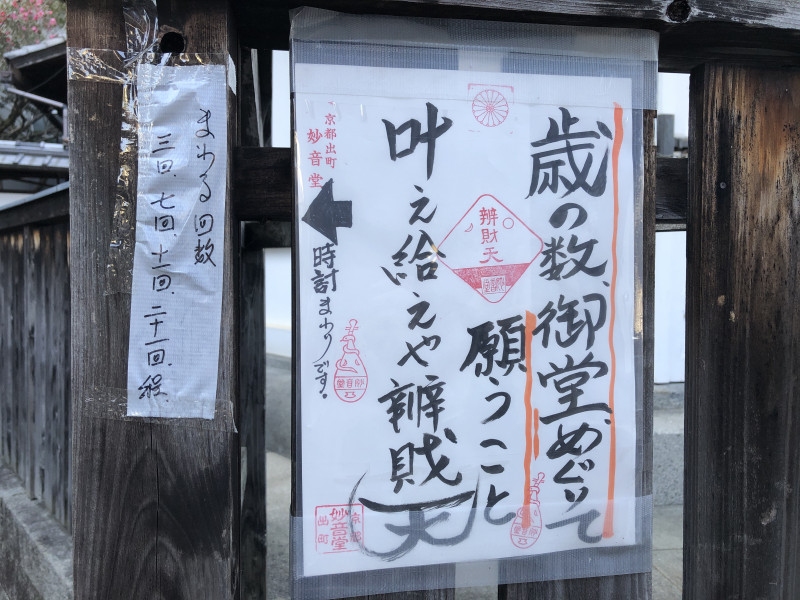 歳の数、御堂めぐりて
願うこと
叶え給えや辨賎天
辨財天
京都出町
妙音堂
時計まわりです。
京都
妙音堂
出町
まわる回数
三回、七回、十一回、二十一回、繰